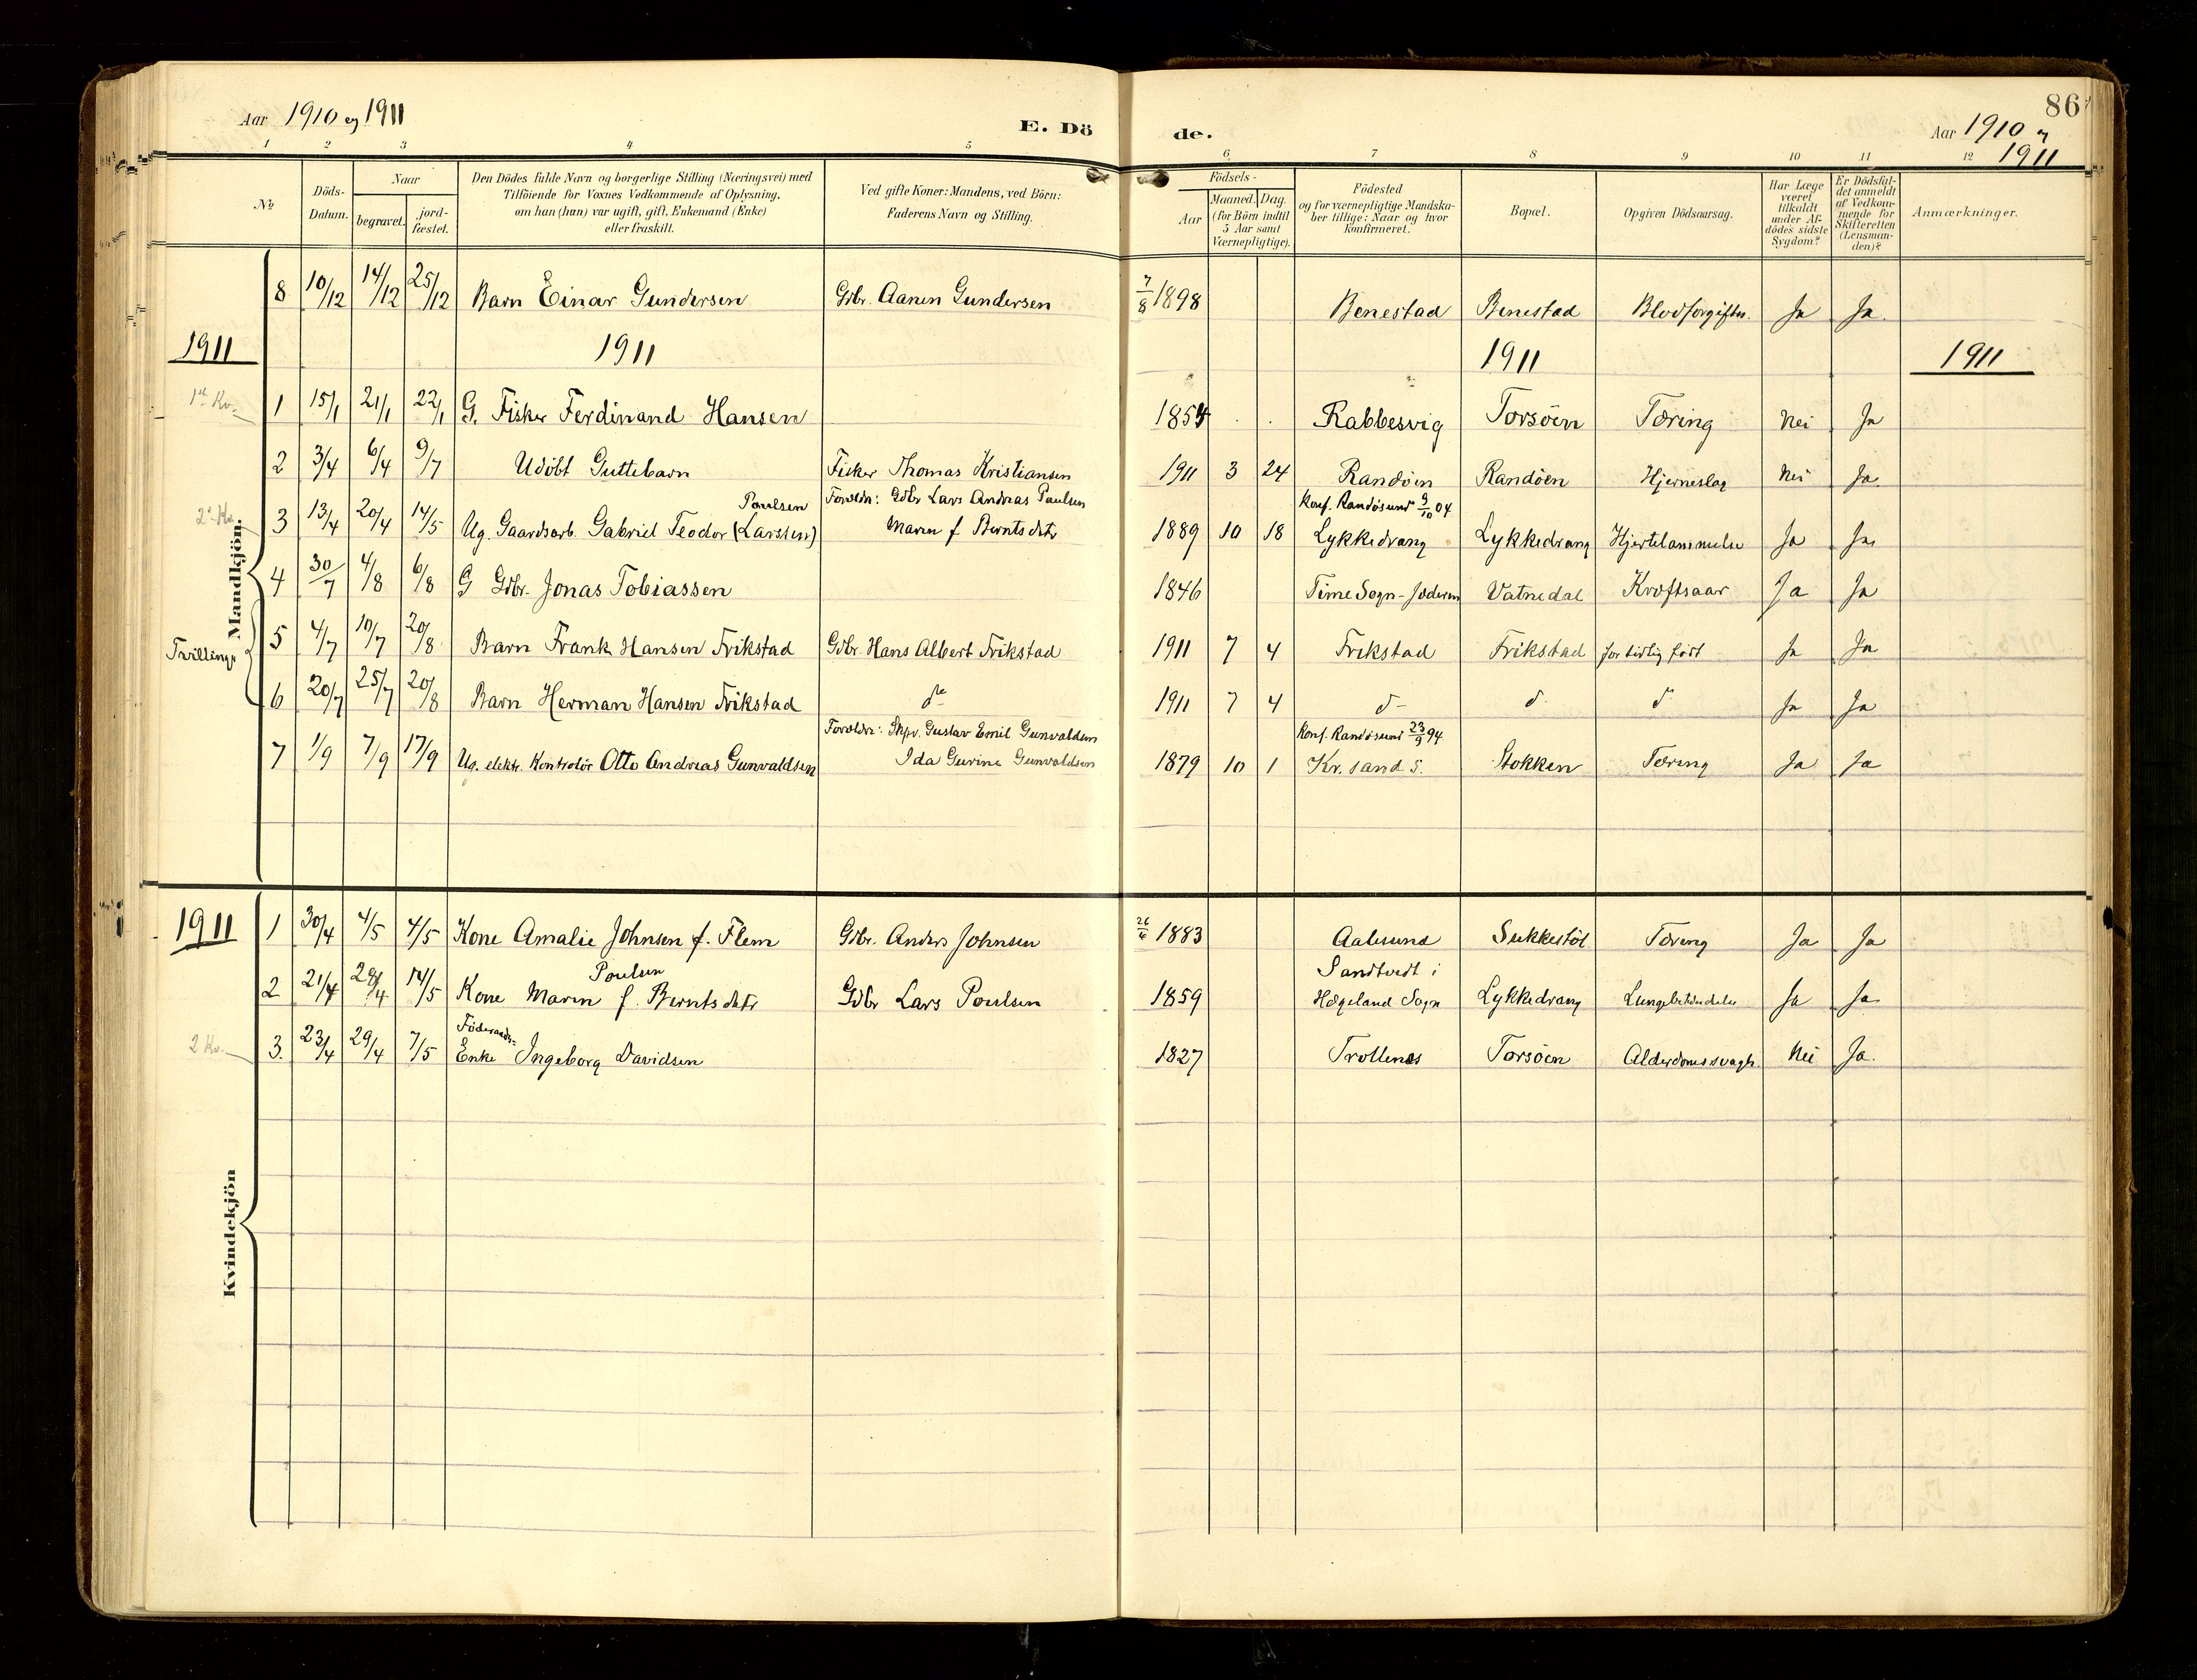 86
Aar 1910 og 1911
E. Dö
de.
Aar 1910 og
1911
1 2 3 4 5 6 7 8 9 10 11 12
No
Döds-Datum.
Naar
begravet.
jord-fæstet.
Den Dödes fulde Navn og borgerlige Stilling (Næringsvei) med
Tilföiende for Voxnes Vedkommende af Oplysning,
om han (hun) var ugift, gift, Enkemand (Enke)
eller fraskilt.
Ved gifte Koner: Mandens, ved Börn:
Faderens Navn og Stilling.
Födsels-
Aar
Maaned. Dag.
(for Börn indtil
5 Aar samt
Værnepligtige).
Födested
og for værnepligtige Mandska-
ber tillige: Naar og hvor
konfirmeret.
Bopæl.
Opgiven Dödsaarsag.
Har Læge
været
tilkaldt
under Af-
dödes sidste
Sygdom?
Er Dödsfal-
det anmeldt
af Vedkom-
mende for
Skifteretten
(Lensman-
den)?
Anmærkninger.
8 10/12 14/12 25/12 Barn Einar Gundersen Gdbr. Aanen Gundersen 7/8 1898 Benestad Benestad Blodforgiftn. Ja Ja.
1911 1911 1911 1911
1 15/1 21/1 22/1 G. Fisker Ferdinand Hansen 1854 Rabbesvig Torsöen Tæring Nei Ja
2 3/4 6/4 9/7 Udöbt Guttebarn Fisker Thomas Kristiansen 1911 3 24 Randöen Randöen Hjerneslag Nei Ja
Poulsen Foreldr: Gdbr Lars Andreas Paulsen Konf. Randösund 9/10 04
3 13/4 20/4 14/5 Ug. Gaardsarb. Gabriel Teodor (Larssen) Maren f. Berntsdtr 1889 10 18 Lykkedrang Lykkedrang Hjertelammelse Ja Ja
Mandkjön.
4 30/7 4/8 6/8 G Gdbr. Jonas Tobiassen 1846 Time Sogn - Jæderen Vatnedal Kræftsaar Ja Ja
Tvillinger
5 4/7 10/7 20/8 Barn Frank Hansen Frikstad Gdbr. Hans Albert Frikstad 1911 7 4 Frikstad Frikstad for tidlig født Ja Ja
6 20/7 25/7 20/8 Barn Herman Hansen Frikstad do 1911 7 4 do do do Ja Ja
Foreldr: Skpr. Gustav Emil Gunvaldsen Konf. Randösund 23/9 94
7 1/9 7/9 17/9 Ug. elektr. Kontrolör Otto Andreas Gunvaldsen Ida Gurine Gunvaldsen 1879 10 1 Kr.sand S. Stokken Tæring Ja Ja
1911 1 30/4 4/5 4/5 Kone Amalie Johnsen f. Flem Gdbr. Anders Johnsen 26/6 1883 Aalesund Sukkestöl Tæring Ja Ja
Poulsen Sandtvedt i
2 21/4 29/4 14/5 Kone Maren f. Berntsdtr Gdbr Lars Poulsen 1859 Hægeland Sogn Lykkedrang Lungebetændelse Ja Ja
Föderaads-
2 Kv. 3. 23/4 29/4 7/5 Enke Ingeborg Davidsen 1827 Trollenes Torsöen Alderdomssvagh. Nei Ja.
Kvindekjön